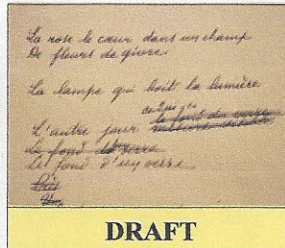 La rose le cœur dans un champ
De fleurs de givre.
La lampe qui boit la lumière
le fond du verre
L'autre jour
Le fond
Le fond d'un verre
DRAFT